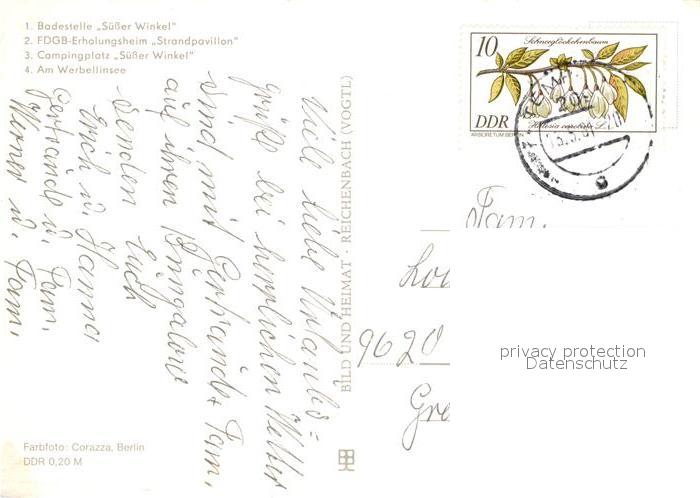 1. Badestelle „Süßer Winkel“
2. FDGB-Erholungsheim „Strandpavillon“
3. Campingplatz „Süßer Winkel“
4. Am Werbellinsee
Viele liebe Urlaubs=
grüße bei herrlichen Wetter
sind mit Gertraude u. Fam.
auf ihren Bungalow
senden Euch
Erich u. Hanna
Gertraude u. Fam.
Werner u. Fam.
BILD UND HEIMAT · REICHENBACH (VOGTL)
10
Schneeglöckchenbaum
DDR
Halesia carolina L.
ARBORETUM BERLIN
Fam.
9620
privacy protection
Datenschutz
Farbfoto: Corazza, Berlin
DDR 0,20 M